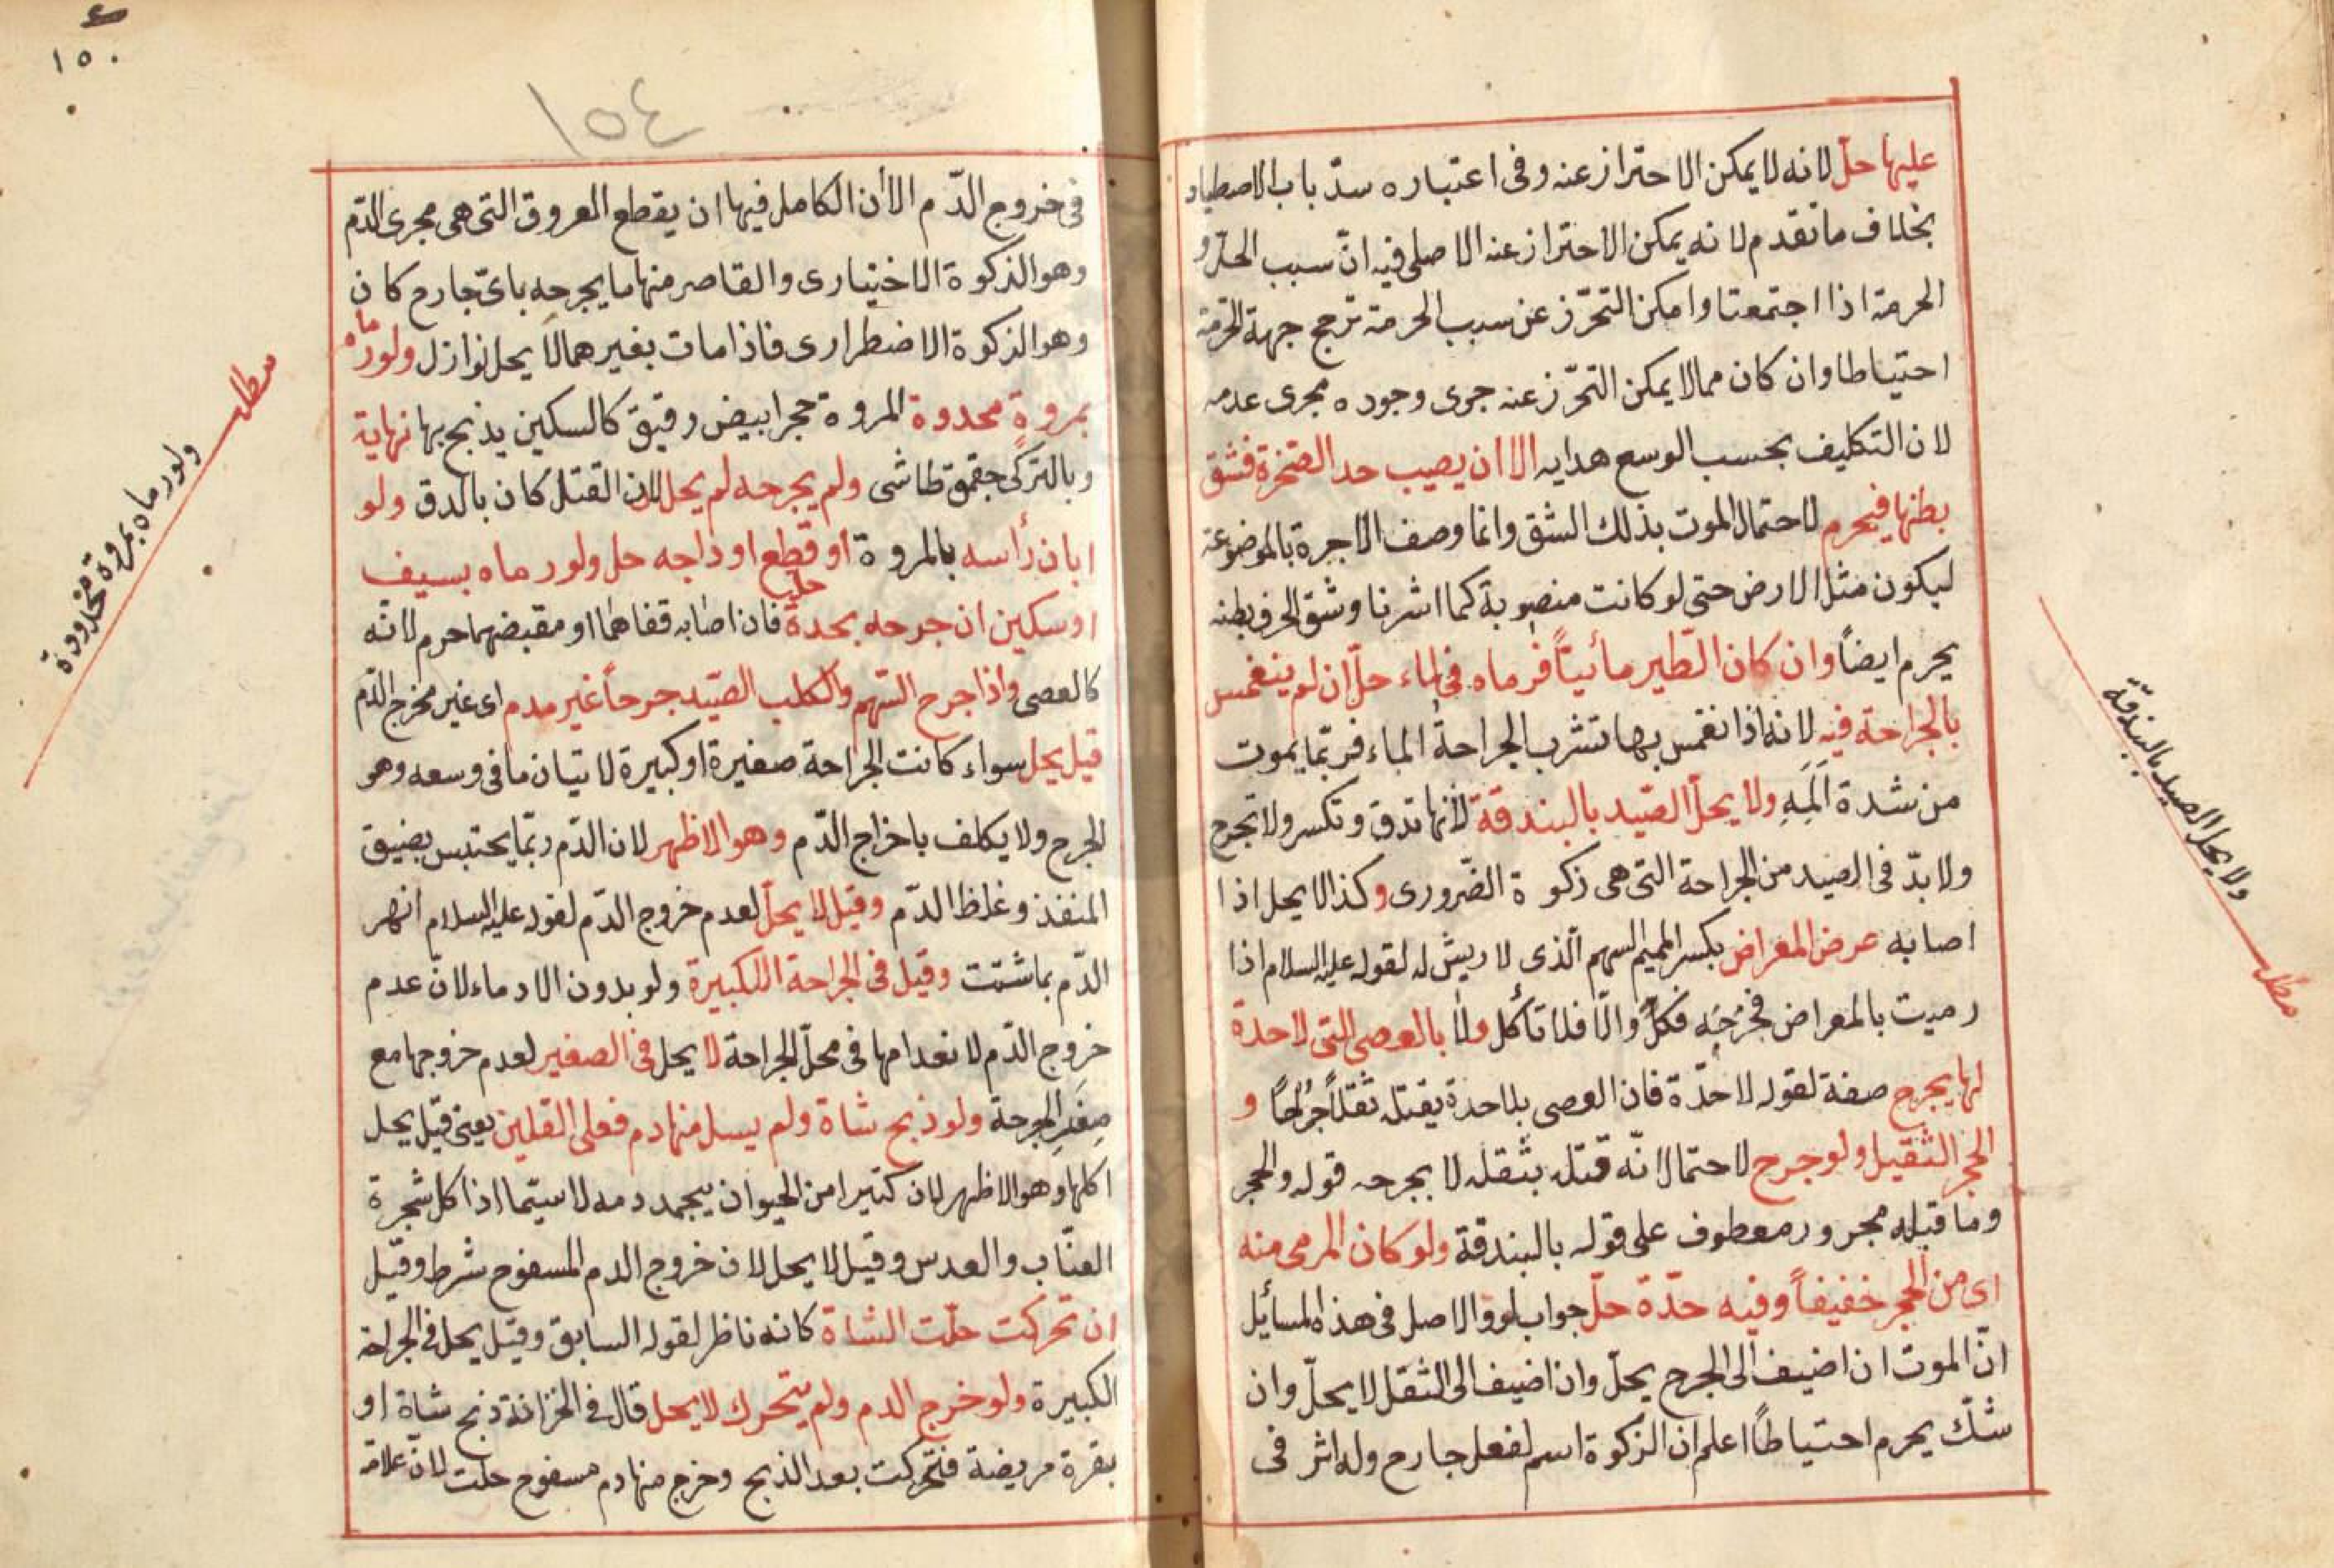 عليها حلّ لانه لا يمكن الاحتراز عنه وفى اعتباره سدّ باب الاصطياد
بخلاف ما تقدم لانه يمكن الاحتراز عنه الاصل فيه انّ سبب الحلّ و
الحرمة اذا اجتمعتا وامكن التحرّز عن سبب الحرمة ترجح جهة الحرمة
احتياطا وان كان مما لا يمكن التحرّز عنه جرى وجوده مجرى عدمه
لان التكليف بحسب الوسع هدايه الا ان يصيب حد الصّخرة فشق
بطنها فيحرم لاحتمال الموت بذلك الشق وانما وصف الآجرة بالموضوعة
ليكون مثل الارض حتى لو كانت منصوبة كما اشرنا وشق الحرف بطنه
يحرم ايضاً وان كان الطّير مائيّاً فرماه فى الماء حلّ ان لم ينغمس
بالجراحة فيه لانه اذا انغمس بها تشرب الجراحةُ الماء فربّما يموت
من شدة المِهِ ولا يحلّ الصّيد بالبندقة لأنها تدق وتكسر ولا تجرح
ولا بدّ فى الصيد من الجراحة التى هى زكوة الضّرورى وكذا لا يحل اذا
اصابه عرض المعراض بكسر الميم السهم الّذى لا ريش له لقوله عليه السلام اذا
رميت بالمعراض فخزجَه فكلْ والّا فلا تأكل ولا بالعصى التى لا حدة
لها يجرح صفة لقوله لا حدّة فان العصى بلا حدة يقتله ثقلاً جرحًا و
الحجر الثقيل ولو جرح لاحتمال انّه قتله بثقله لا بجرحه قوله والحجر
وما قبله مجرور معطوف على قوله بالبندقة ولو كان المرمى منه
اى من الحجر خفيفاً وفيه حدّة حلّ جواب لو والاصل فى هذه المسائل
انّ الموت ان اضيف الى الجرح يحلّ وان اضيف الى الثقل لا يحلّ وان
شكّ يحرم احتياطاً اعلم ان الزكوة اسم لفعل جارح وله اثر فى
ولا يحل الصيد بالبندقة
مطلب
١٥٠
١٥٤
فى خروج الدّم الا أن الكامل فيها ان يقطع العروق التى هى مجرى الدّم
وهو الذكوة الاختيارى والقاصر منها ما يجرحه باىّ جارح كان
وهو الزكوة الاضطرارى فاذا مات بغيرهما لا يحل نوازل ولو رماه
بمروة محدودة المروة حجر ابيض رقيق كالسكين يذبح بها نهاية
وبالتركى جقمق طاشى ولم يجرحه لم يحل لان القتل كان بالدق ولو
ابان رأسه بالمروة او قطع اوداجه حل ولو رماه بسيف
او سكين ان جرحه بحدة حلّ فان اصابه قفاهما او مقبضهما حرم لانّه
كالعصى واذا جرح السّهم والكلب الصّيد جرحاً غير مدم اى غير مخرج الدّم
قيل يحل سواء كانت الجراحة صغيرة او كبيرة لاتيان ما فى وسعه وهو
الجرح ولا يكلف باخراج الدّم وهو الاظهر لان الدّم ربّما يحتبس بضيق
المنفذ وغلظ الدّم وقيل لا يحلّ لعدم خروج الدّم لقوله عليه السلام انهر
الدّم بما شئت وقيل فى الجراحة الكبيرة ولو بدون الادماء لانّ عدم
خروج الدّم لانعدامها فى محلّ الجراحة لا يحل فى الصغير لعدم خروجها مع
صِغَرِ الجرحة ولو ذبح شاة ولم يسل منها دم فعلى القلين يعنى قيل يحل
اكلها وهو الاظهر لان كثيرا من الحيوان يجمد دمه لا سيّما اذا اكل شجرة
العنّاب والعدس وقيل لا يحل لان خروج الدم المسفوح شرط وقيل
ان تحركت حلّت الشاة كانه ناظر لقوله السابق وقيل يحل فى الجراحة
الكبيرة ولو خرج الدم ولم يتحرك لا يحل قال فى الخزانة ذبح شاة او
بقرة مريضة فتحركت بعد الذبح وخرج منها دم مسفوح حلت لانّ علامة
مطلب
ولو رماه بمروة محدودة